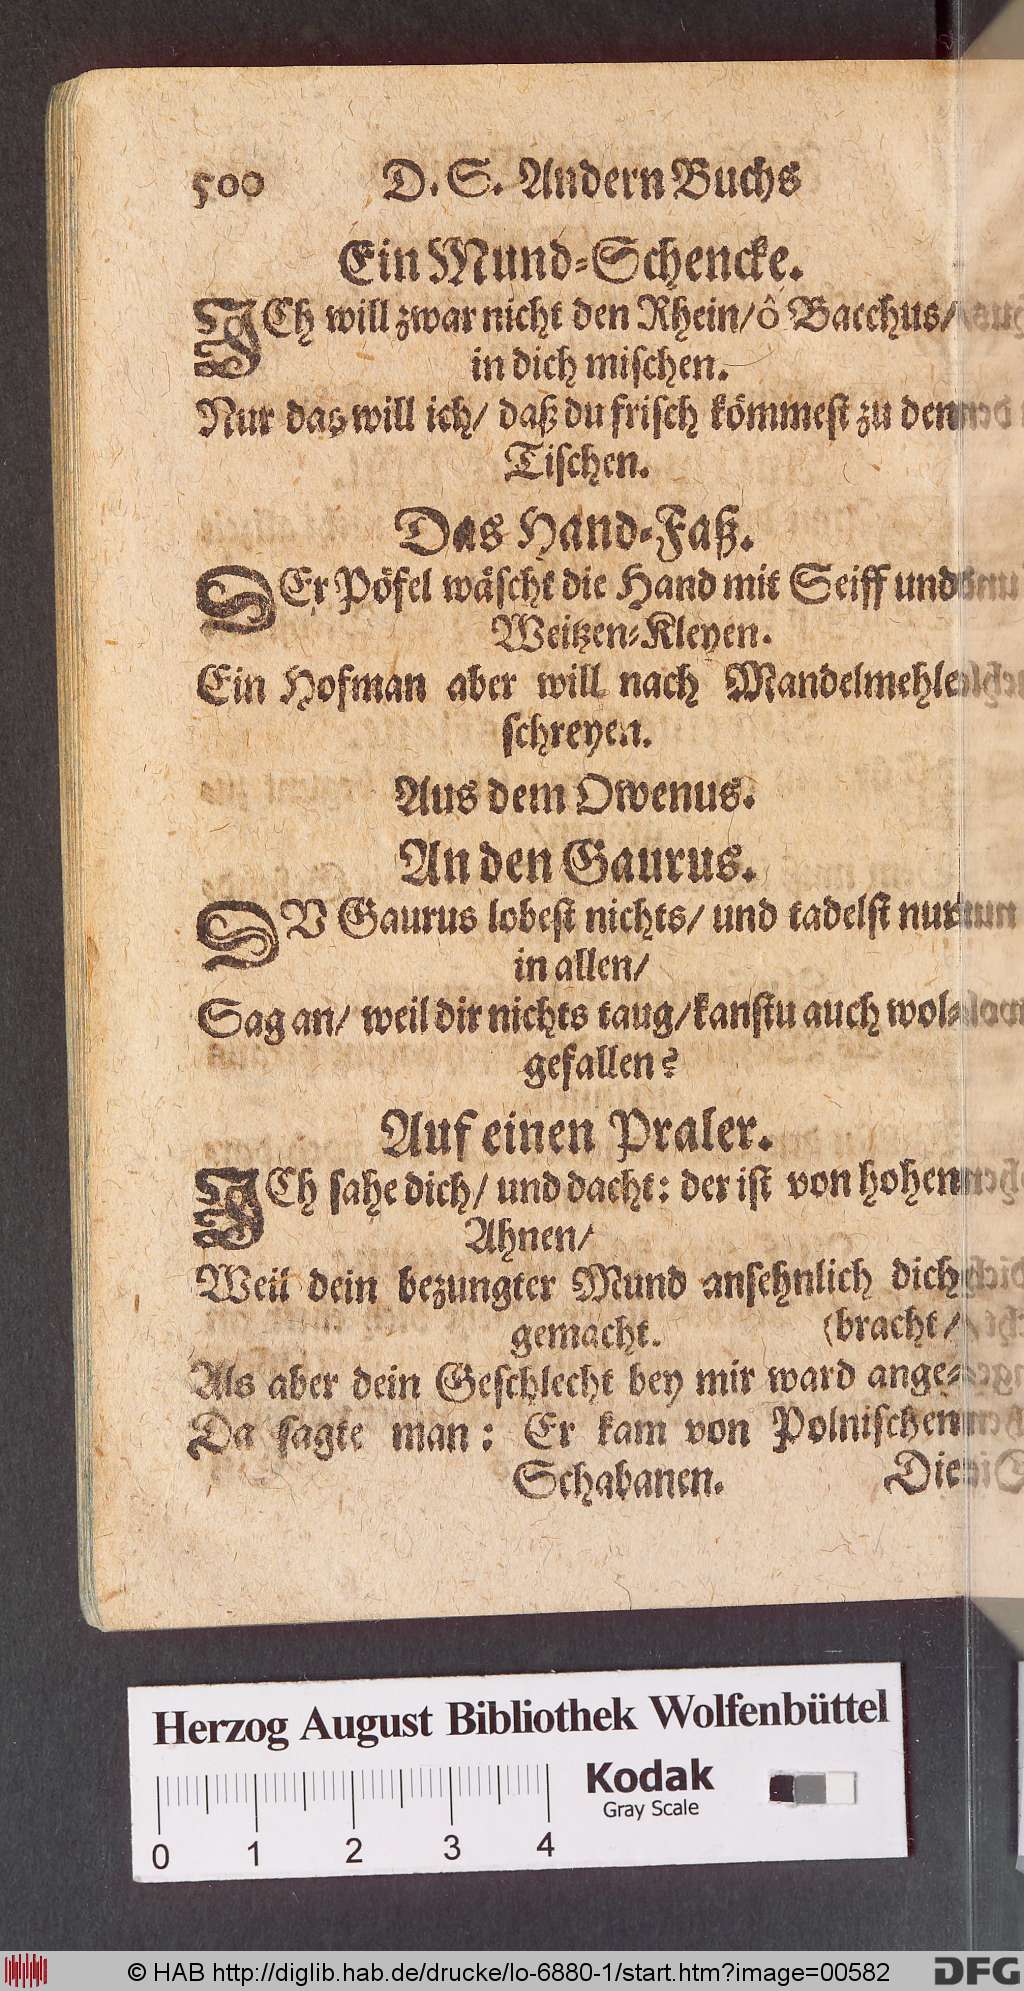 500 D. S. Andern Buchs
Ein Mund-Schencke.
ICh will zwar nicht den Rhein/ ô Bacchus/
in dich mischen.
Nur daß will ich/ daß du frisch kömmest zu den
Tischen.
Das Hand-Faß.
DEr Pöfel wäscht die Hand mit Seiff und
Weitzen-Kleyen.
Ein Hofman aber will nach Mandelmehle
schreyen.
Aus dem Owenus.
An den Gaurus.
DV Gaurus lobest nichts/ und tadelst nur
in allen/
Sag an/ weil dir nichts taug/ kanstu auch wol
gefallen?
Auf einen Praler.
ICh sahe dich/ und dacht: der ist von hohen
Ahnen/
Weil dein bezungter Mund ansehnlich dich
gemacht. (bracht/
Als aber dein Geschlecht bey mir ward ange-
Da sagte man: Er kam von Polnischen
Schabanen. Die
Herzog August Bibliothek Wolfenbüttel
Kodak
Gray Scale
0 1 2 3 4
© HAB http://diglib.hab.de/drucke/lo-6880-1/start.htm?image=00582 DFG